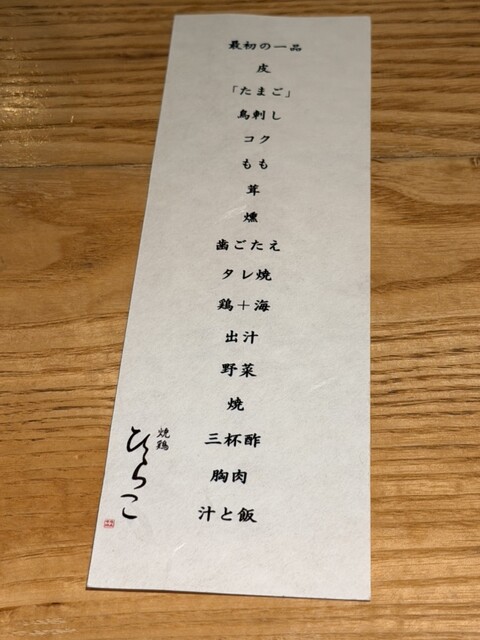 最初の一品
皮
「たまご」
鳥刺し
コク
もも
茸
燻
歯ごたえ
タレ焼
鶏＋海
出汁
野菜
焼
三杯酢
胸肉
汁と飯
焼鶏
ひらこ